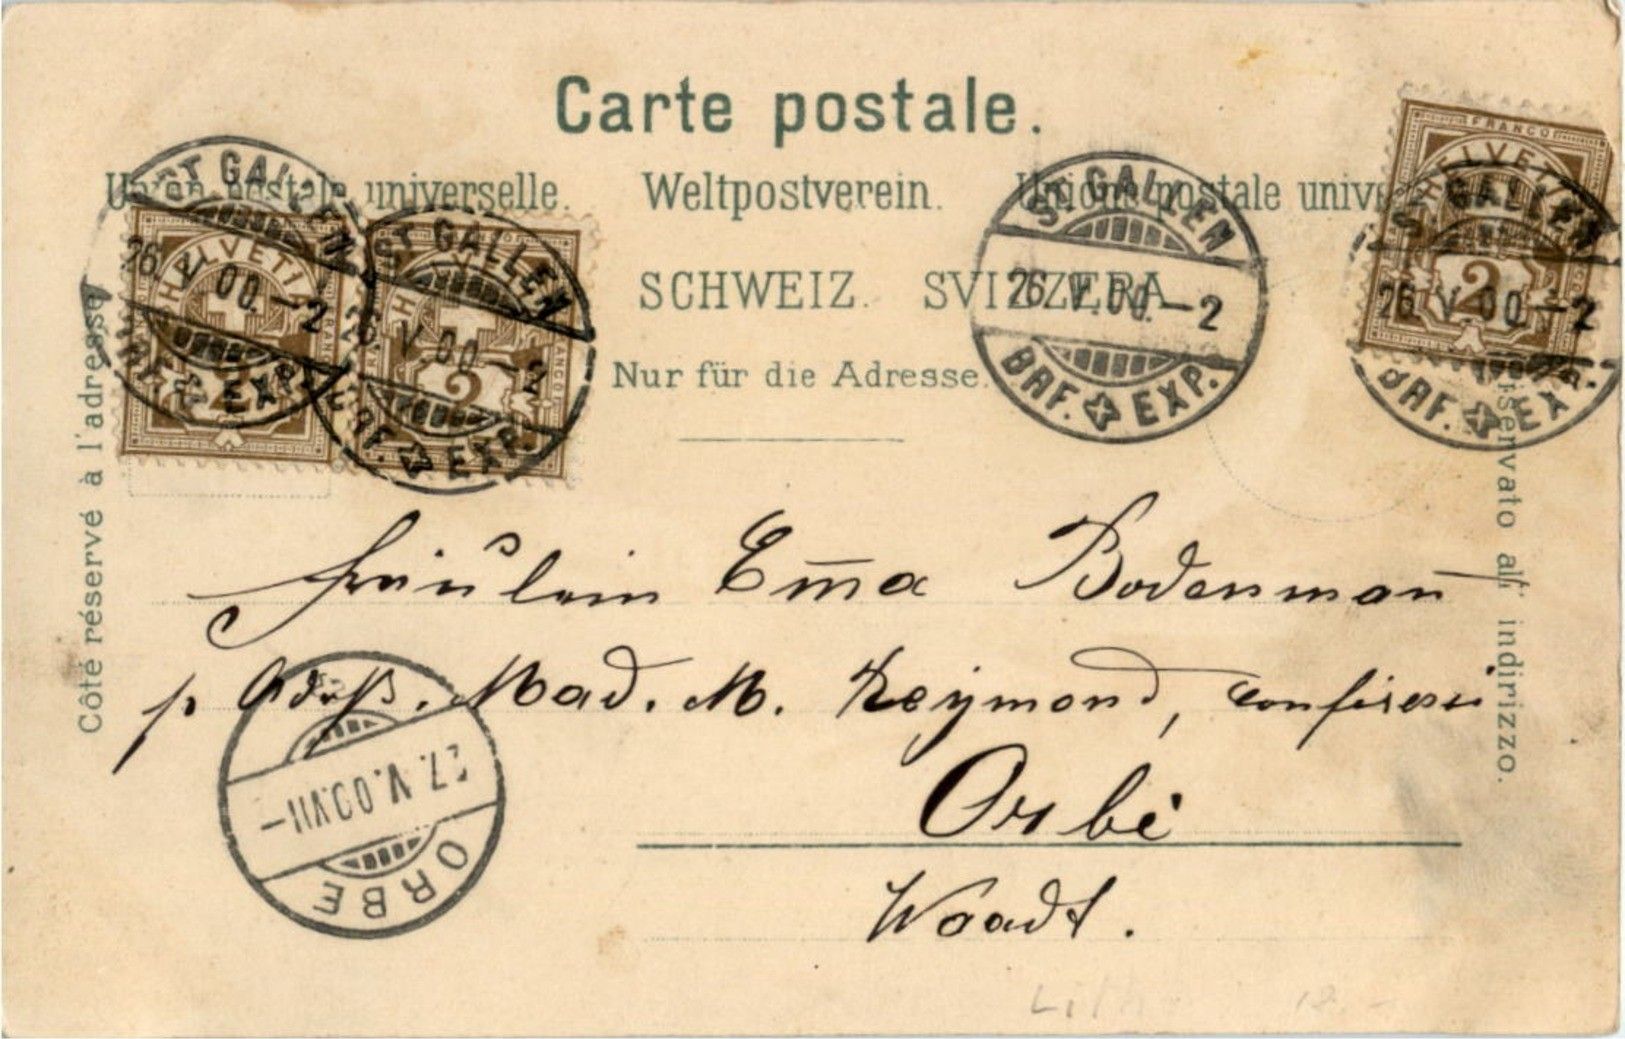 Carte postale.
Union postale universelle. Weltpostverein. Unione postale unive
SCHWEIZ. SVIZZERA
Nur für die Adresse.
Côté réservé à l'adresse
riservato all' indirizzo.
ST GALLEN
26. V. 00. – 2
BRF. EXP.
ST GALLEN
26. V. 00. – 2
BRF. EXP.
ST. GALLEN
26. V. 00. – 2
BRF. EXP.
ST. GALLEN
26. V. 00. – 2
BRF. EXP.
HELVETIA
2
HELVETIA
FRANCO
2
FRANCO
HELVETIA
2
Fräulein Em̄a Bodenman̄
p Adrß. Mad. M. Reymond,
Orbè
Waadt.
27. V. 00. VII –
ORBE
Lith
12.-